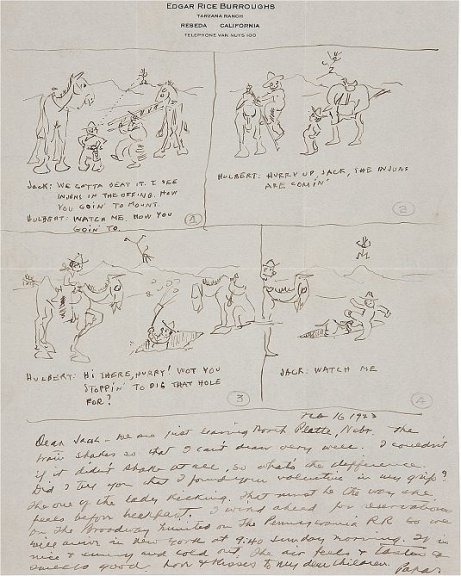 EDGAR RICE BURROUGHS
TARZANA RANCH
RESEDA CALIFORNIA
TELEPHONE VAN NUYS 100
JACK: WE GOTTA BEAT IT. I SEE
INJUNS IN THE OFFING. HOW
YOU GOIN' TO MOUNT
HULBERT: WATCH ME HOW YOU
GOIN' TO.
1
HULBERT: HURRY UP, JACK, SHE INJUNS
ARE COMIN'
2
HULBERT: HI THERE, HURRY! WOT YOU
STOPPIN' TO DIG THAT HOLE
FOR?
3
JACK: WATCH ME
4
Feb 16 1923
Dear Jack - We are just leaving North Platte, Nebr. The
train shakes so that I can't draw very well. I couldn't
if it didn't shake at all, so what's the difference.
Did I tell you that I found your valentine in my grip?
The one of the lady kicking. That must be the way she
feels before breakfast. I wired ahead for reservations
on the Broadway Limited on the Pennsylvania RR so we
will arrive in New York at 9:40 Sunday morning. It is
nice & sunny and cold out. The air feels &
good. Love & kisses to my dear children. Papa.